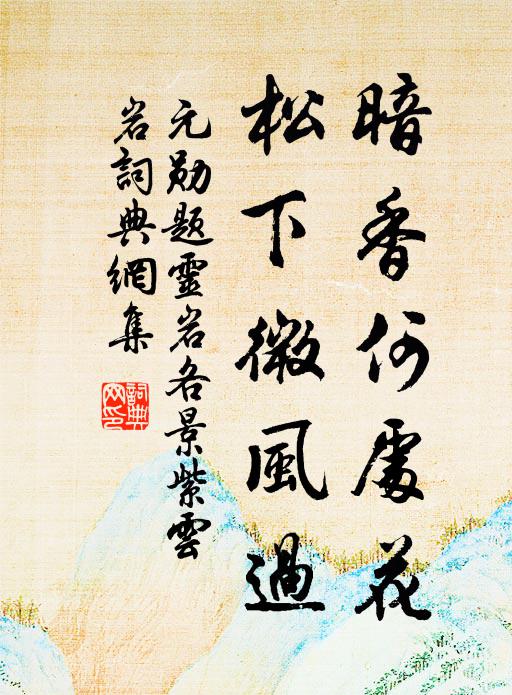 暗香何處花
松下微風過
元勛題靈岩各景紫雲
岩詞典網集
詞典网印